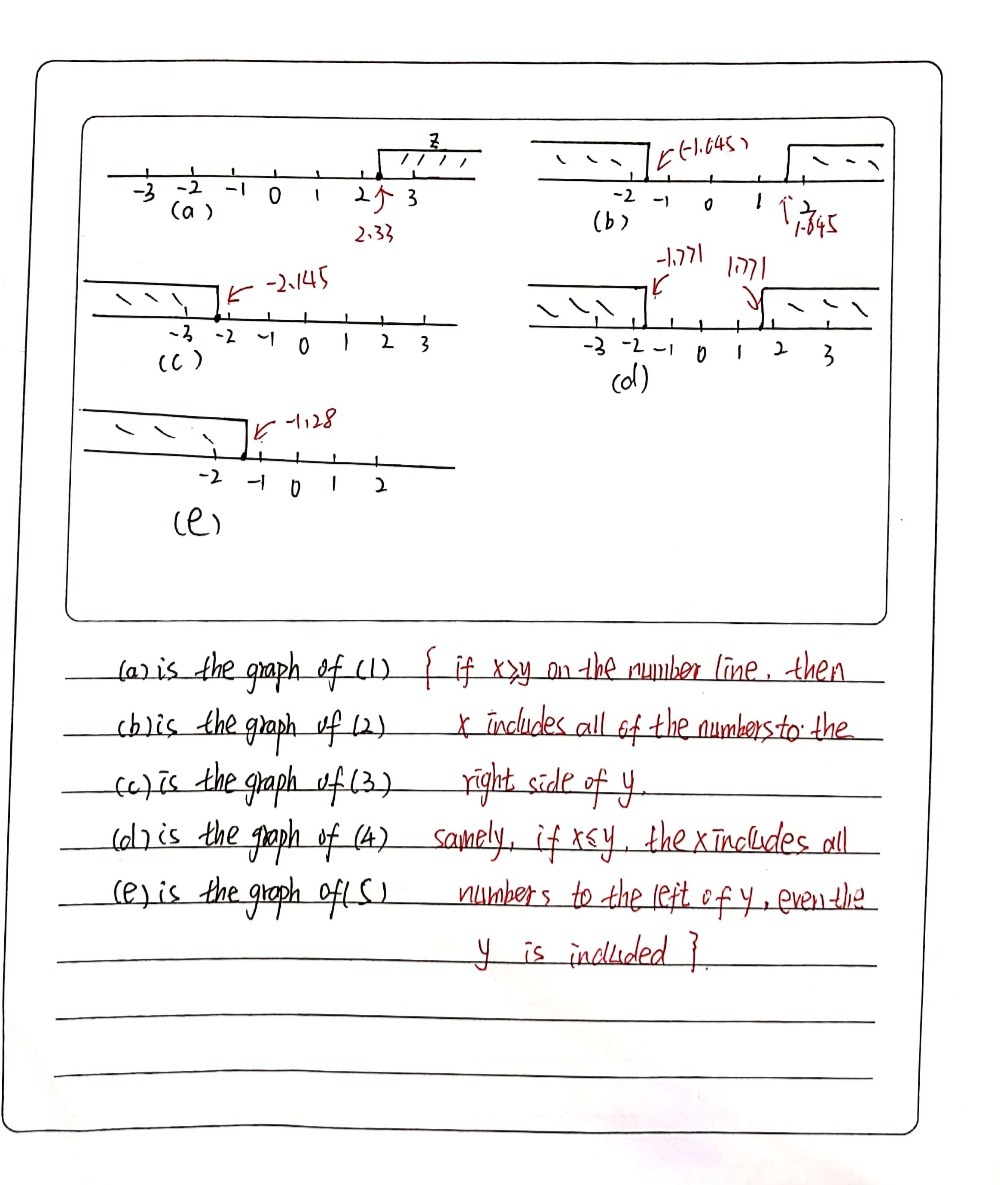 z
-3 -2 -1 0 1 2 3
(a)
2.33
(-1.645)
-2 -1 0 1 2
(b)
1.645
-2.145
-3 -2 -1 0 1 2 3
(c)
-1.771 1.771
-3 -2 -1 0 1 2 3
(d)
-1.28
-2 -1 0 1 2
(e)
(a) is the graph of (1) { if x≥y on the number line, then
(b) is the graph of (2) x includes all of the numbers to the
(c) is the graph of (3) right side of y.
(d) is the graph of (4) samely, if x≤y, the x includes all
(e) is the graph of (5) numbers to the left of y, even the
y is included }.